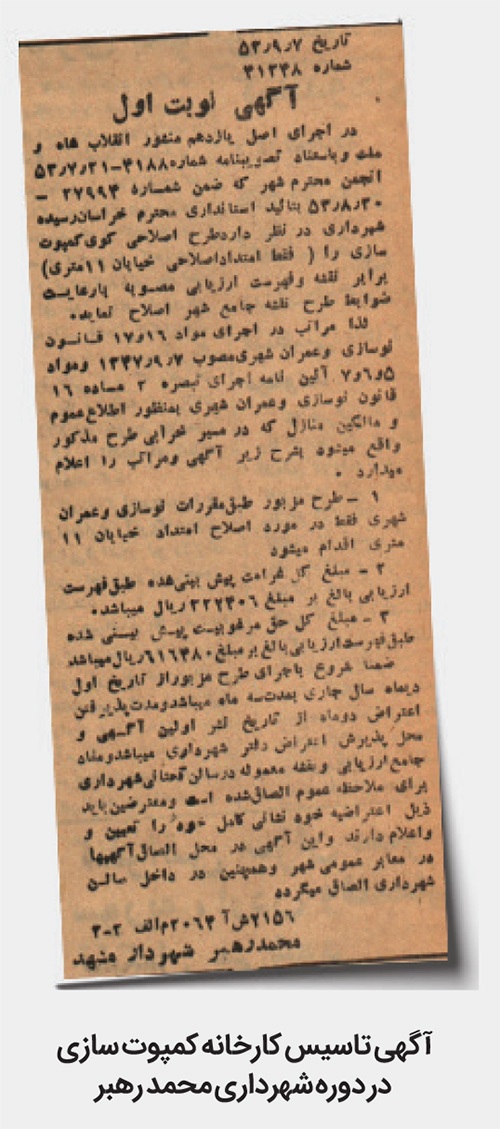 تاریخ ۵۳٫۹٫۷
شماره ۴۱۳۴۸
آگهی نوبت اول
در اجرای اصل یازدهم منشور انقلاب شاه و
ملت و باستناد تصویبنامه شماره ۴۱۸۸-۵۳٫۷٫۲۱
انجمن محترم شهر که ضمن شماره ۲۷۹۹۴ -
۵۳٫۸٫۲۰ بتائید استانداری محترم خراسان رسیده
شهرداری در نظر دارد طرح اصلاحی کوی کمپوت
سازی را ( فقط امتداد اصلاحی خیابان ۱۱ متری)
برابر نقشه و فهرست ارزیابی مصوبه بارعایت
ضوابط طرح نقشه جامع شهر اصلاح نماید.
لذا مراتب در اجرای مواد ۱۶ و ۱۷ قانون
نوسازی وعمران شهری مصوب ۱۳۴۷٫۹٫۷ ومواد
۵و۶و۷ آئین نامه اجرای تبصره ۲ ماده ۱۶
قانون نوسازی وعمران شهری بمنظور اطلاع عموم
و مالکین منازل که در مسیر خرابی طرح مذکور
واقع میشود بشرح زیر آگهی ومراتب را اعلام
میدارد .
۱ - طرح مزبور طبق مقررات نوسازی وعمران
شهری فقط در مورد اصلاح امتداد خیابان ۱۱
متری اقدام میشود
۲ - مبلغ کل غرامت پیش بینی شده طبق فهرست
ارزیابی بالغ بر مبلغ ۳۲۲۴۰۶ ریال میباشد.
۳ - مبلغ کل حق مرغوبیت پیش بینی شده
طبق فهرست ارزیابی بالغ بر مبلغ ۶۱۶۴۸۰ ریال میباشد
ضمنا شروع باجرای طرح مزبور از تاریخ اول
دیماه سال جاری بمدت سه ماه میباشد ومدت پذیرفتن
اعتراض دوماه از تاریخ نشر اولین آگهی و
محل پذیرش اعتراض دفتر شهرداری میباشد ومفاد
جامع ارزیابی ونقشه معموله در سالن تحتانی شهرداری
برای ملاحظه عموم الصاق شده است ومعترضین باید
ذیل اعتراضیه خود نشانی کامل خود را تعیین و
واعلام دارند واین آگهی در محل الصاق آگهیها
در معابر عمومی شهر وهمچنین در داخل سالن
شهرداری الصاق میگردد
۲۱۵۶ش‌آ ۲۰۶۴م‌الف ۲-۲
محمد رهبر شهردار مشهد
آگهی تاسیس کارخانه کمپوت سازی
در دوره شهرداری محمد رهبر